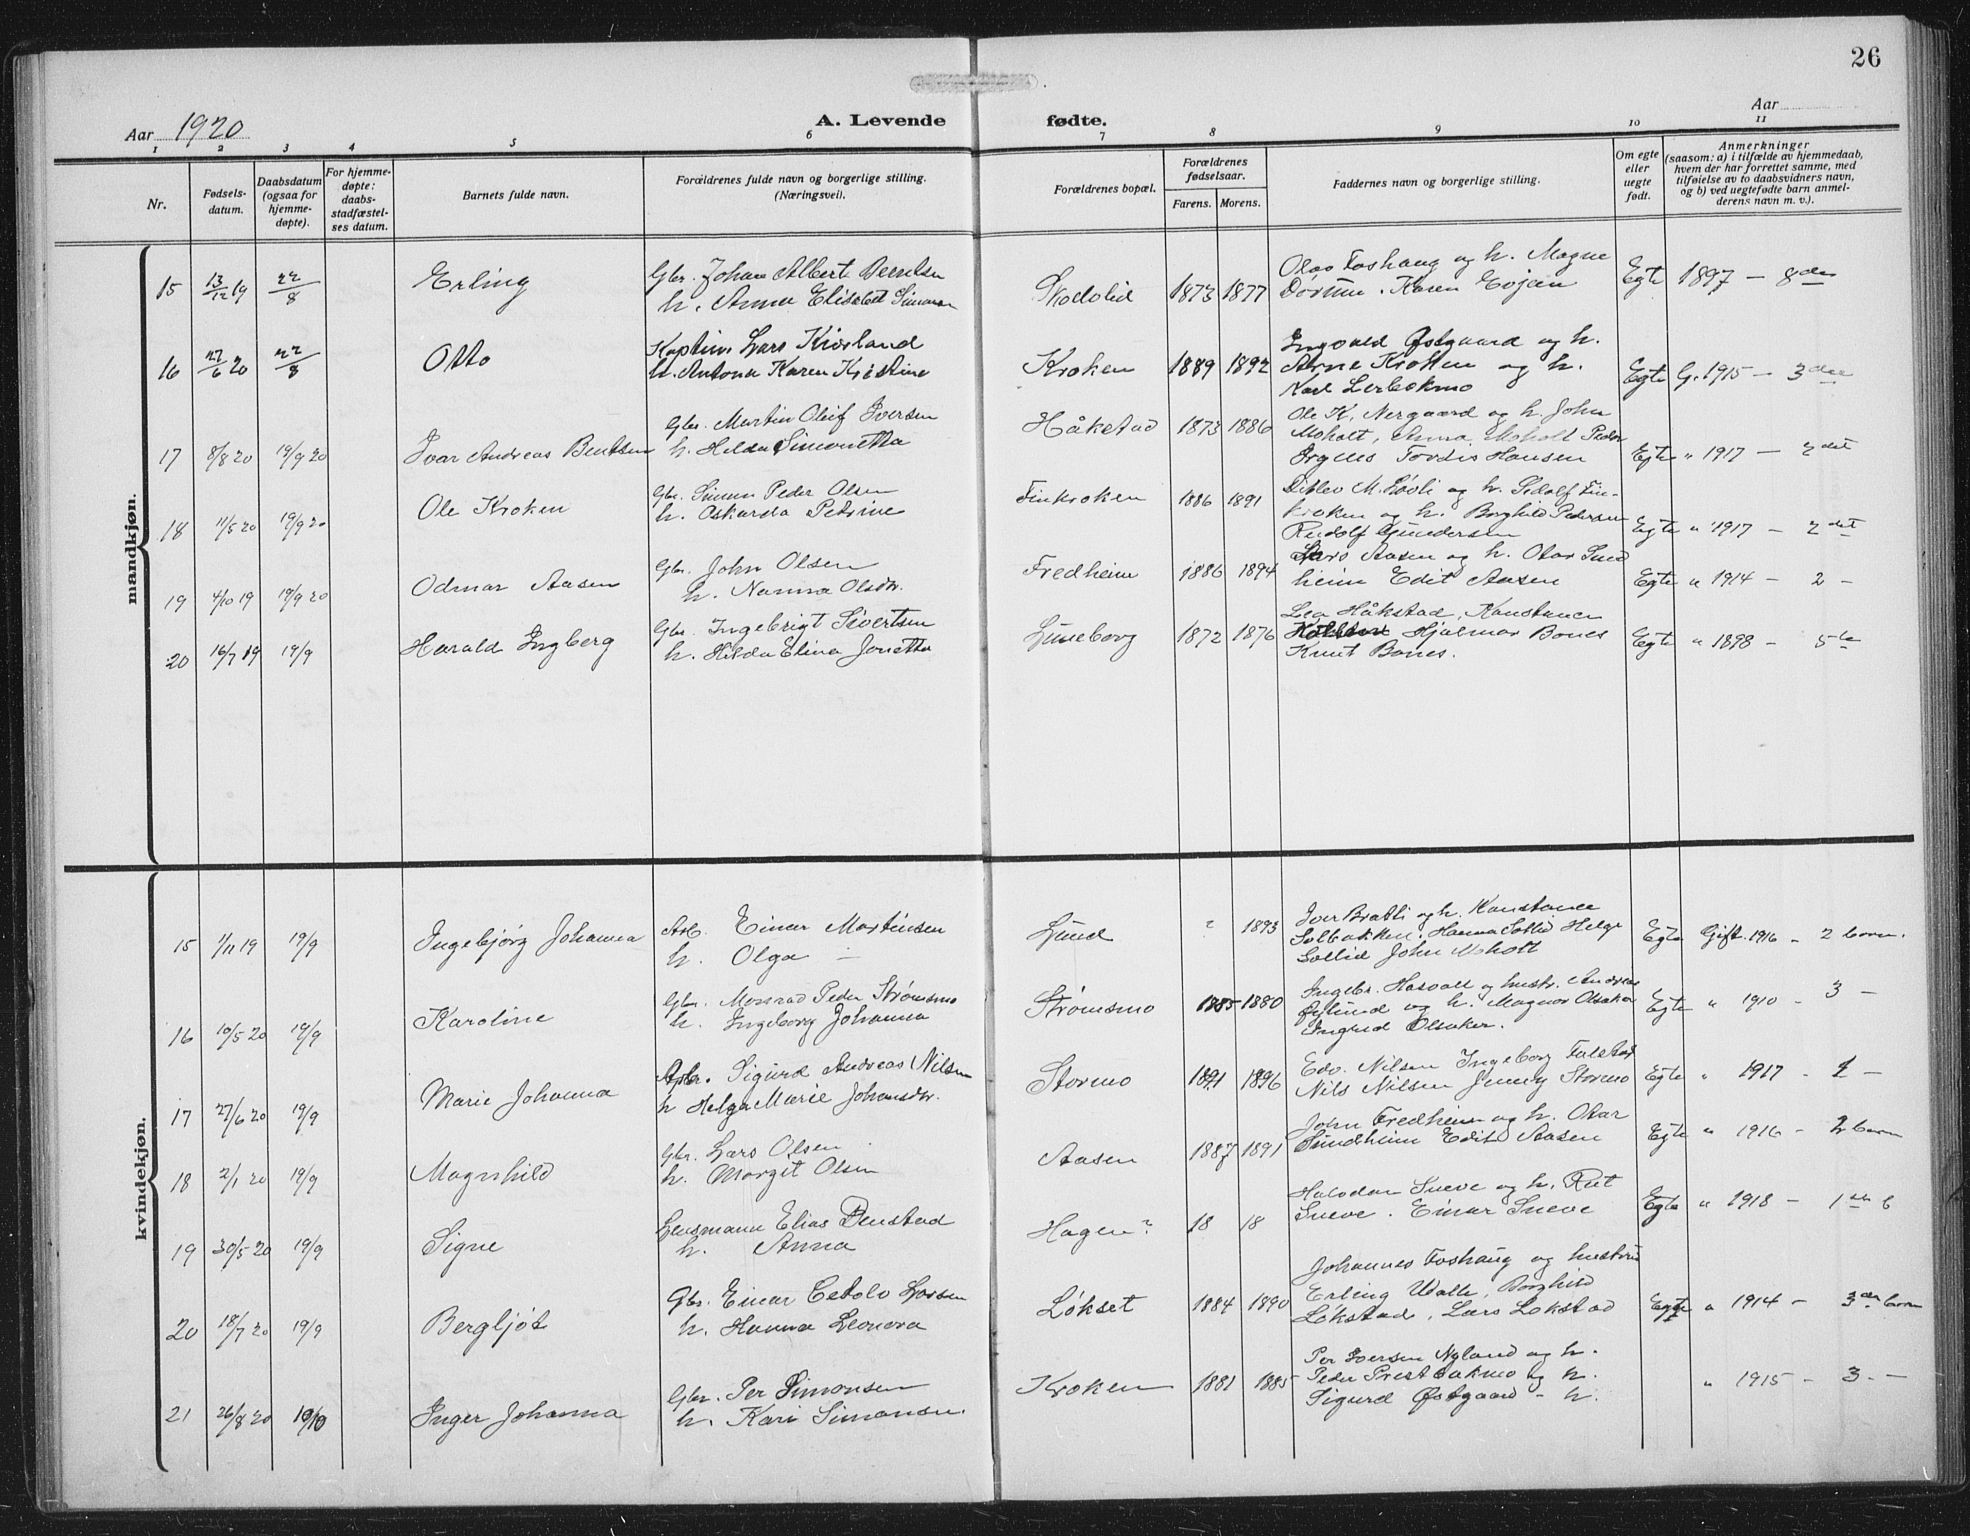 26
Aar 1920
A. Levende fødte.
Aar
1 2 3 4 5 6 7 8 9 10 11
Nr.
Fødsels-
datum.
Daabsdatum
(ogsaa for
hjemme-
døpte).
For hjemme-
døpte:
daabs-
stadfæstel-
ses datum.
Barnets fulde navn.
Forældrenes fulde navn og borgerlige stilling.
(Næringsvei).
Forældrenes bopæl.
Forældrenes
fødselsaar.
Farens. Morens.
Faddernes navn og borgerlige stilling.
Om egte
eller
uegte
født.
Anmerkninger
(saasom: a) i tilfælde av hjemmedaab,
hvem der har forrettet samme, med
tilføielse av to daabsvidners navn,
og b) ved uegtefødte barn anmel-
derens navn m. v.).
mandkjøn.
15 13/12 19 22/8 Erling
Gbr. Johan Albert Berntsen
h. Anna Elisabet
1873 1877
Olav Foshaug og h. Magne
Karen
Egte 1897 — 8de
16 27/6 20 22/8 Otto
Lars
h. Antona Karen Kristine
Kroken 1889 1892
Ingvald Østgaard og h.
Arne Kroken og h.
Karl
Egte G. 1915 — 3dee
17 8/8 20 19/9 20 Ivar Andreas Bentsen
Gbr. Martin Oluf Iversen
h. Hilda Simonetta
Håkstad 1873 1886
Ole K. Nergaard og h. John
Moholt, Anna Moholt Peder
Tordis Hansen
Egte " 1917 — 2det
18 11/5 20 19/9 20 Ole Kroken
Gbr. Simon Peder Olsen
h. Oskarda Petrine
Finkroken 1886 1891
Ditlev M. Løvli og h. Sidolf Fin-
kroken og h. Borghild Pedersen
Rudolf Gundersen
Egte " 1917 — 2det
19 4/10 19 19/9 20 Odmar Aasen
Gbr. John Olsen
h. Nanna Olsdtr.
Fredheim 1886 1894
Lars Aasen og h. Otar Sund
heim Edit Aasen
Egte " 1914 — 2 —
20 16/7 19 19/9 Harald Ingberg
Gbr. Ingebrigt Sivertsen
h. Hilda Elina Jonetta
1872 1876
Lea Håkstad, Konstance
Hjalmar Bones
Knut Bones.
Egte " 1898 — 5te
kvindekjøn.
15 1/11 19 19/9 Ingebjørg Johanna
Arb. Einar Martinsen
h. Olga —
Lund ? 1893
Iver Bratli og h. Konstance
Solbakken. Hanna Sollid Helge
Sollid John Moholt
Egte Gift. 1916 - 2 barn.
16 10/5 20 19/9 Karoline
Gbr. Monrad Peder Strømsmo
h. Ingeborg Johanna
Strømsmo 1885 1880
Ingebr. og hustr. Andreas
og h. Magnor Olsaker
Ingrid Olsaker.
Egte " 1910 - 3 —
17 27/6 20 19/9 Marie Johanna
Sigurd Andreas Nilsen
h Helga Marie Johansdtr.
Stormo 1891 1896
Edv. Nilsen Ingeborg
Nils Nilsen Jenny Stormo
Egte " 1917 - 1 —
18 2/1 20 19/9 Magnhild
Gbr. Lars Olsen
h. Margit Olsen
Aasen 1887 1891
John Fredheim og h. Otar
Sundheim Edit Aasen
Egte " 1916 - 2 barn
19 30/5 20 19/9 Signe
Lensmann Elias Benstad
h. Anna
Hagen? 18 18
Halvdan Sneve og h. Rut
Sneve. Einar Sneve
Egte " 1918 - 1ste b
20 18/7 20 19/9 Bergljot
Gbr. Einar Larsen
h. Hanna Leonora
Løkset 1884 1890
Johannes Foshaug og hustru
Erling Valle, Borghild
Løkstad, Lars Løkstad
Egte " 1914 - 3de barn
21 26/8 20 10/10 Inger Johanna
Gbr. Per Simonsen
h. Kari Simonsen.
Kroken 1881 1885
Per Iversen Nyland og h.
Peder Prestbakmo og h.
Sigurd Østgaard - h.
" 1915 - 3 - —